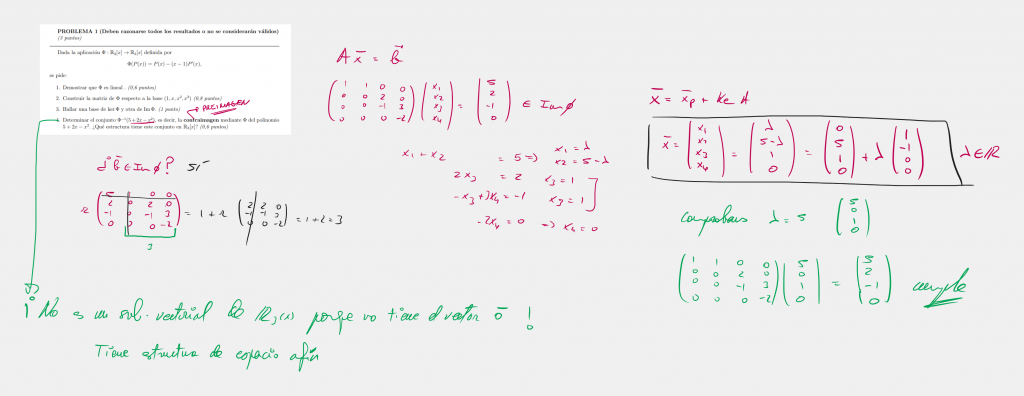 PROBLEMA 1 (Deben razonarse todos los resultados o no se considerarán válidos)
(3 puntos)
Dada la aplicación Φ : ℝ₃[x] → ℝ₃[x] definida por
Φ(P(x)) = P(x) − (x − 1)P′(x),
se pide:
1. Demostrar que Φ es lineal. (0,6 puntos)
2. Construir la matriz de Φ respecto a la base (1, x, x², x³) (0,8 puntos)
3. Hallar una base de ker Φ y otra de Im Φ. (1 punto)
PREIMAGEN
4. Determinar el conjunto Φ⁻¹(5 + 2x − x²), es decir, la contraimagen mediante Φ del polinomio
5 + 2x − x². ¿Qué estructura tiene este conjunto en ℝ₃[x]? (0,6 puntos)
¿b̄ ∈ Im φ? SÍ
r ( 5 1 0 0
2 0 2 0 0
-1 0 -1 3
0 0 0 -2 ) = 1 + r ( 2 2 0
-1 -1 3
0 0 -2 ) = 1+2=3
3
A x̄ = b̄
( 1 1 0 0
0 0 2 0
0 0 -1 3
0 0 0 -2 ) ( x₁
x₂
x₃
x₄ ) = ( 5
2
-1
0 ) ∈ Im φ
x₁ + x₂ = 5 => x₁ = λ
x₂ = 5-λ
2x₃ = 2 x₃ = 1
-x₃ + 3x₄ = -1 x₃ = 1
-2x₄ = 0 => x₄ = 0
x̄ = x̄p + Ker A
x̄ = ( x₁
x₂
x₃
x₄ ) = ( λ
5-λ
1
0 ) = ( 0
5
1
0 ) + λ ( 1
-1
0
0 ) λ ∈ ℝ
comprobamos λ = 5 ( 5
0
1
0 )
( 1 1 0 0
0 0 2 0
0 0 -1 3
0 0 0 -2 ) ( 5
0
1
0 ) = ( 5
2
-1
0 ) cumple
¡ No es un sub. vectorial de ℝ₃(x) porque no tiene el vector 0̄ !
Tiene estructura de espacio afín